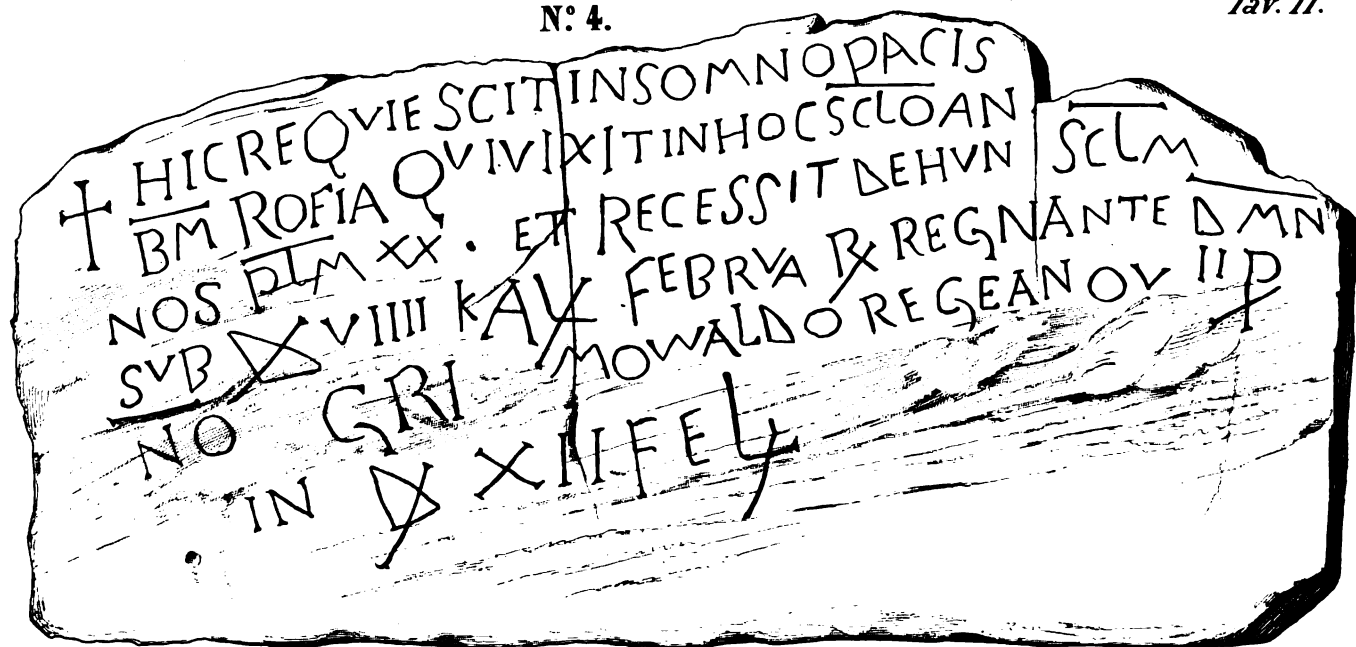 Nº. 4.
Tav. II.
✝ HICREQVIESCIT INSOMNOPACIS
BM ROFIA QVIVIXITINHOCSCLOAN
NOS PLM XX · ET RECESSIT DEHVN SCLM
SVB D VIIII KAL FEBRVA R REGNANTE DMN
NO GRI MOWALDO REGEANOV IIP
IN D XII FEL